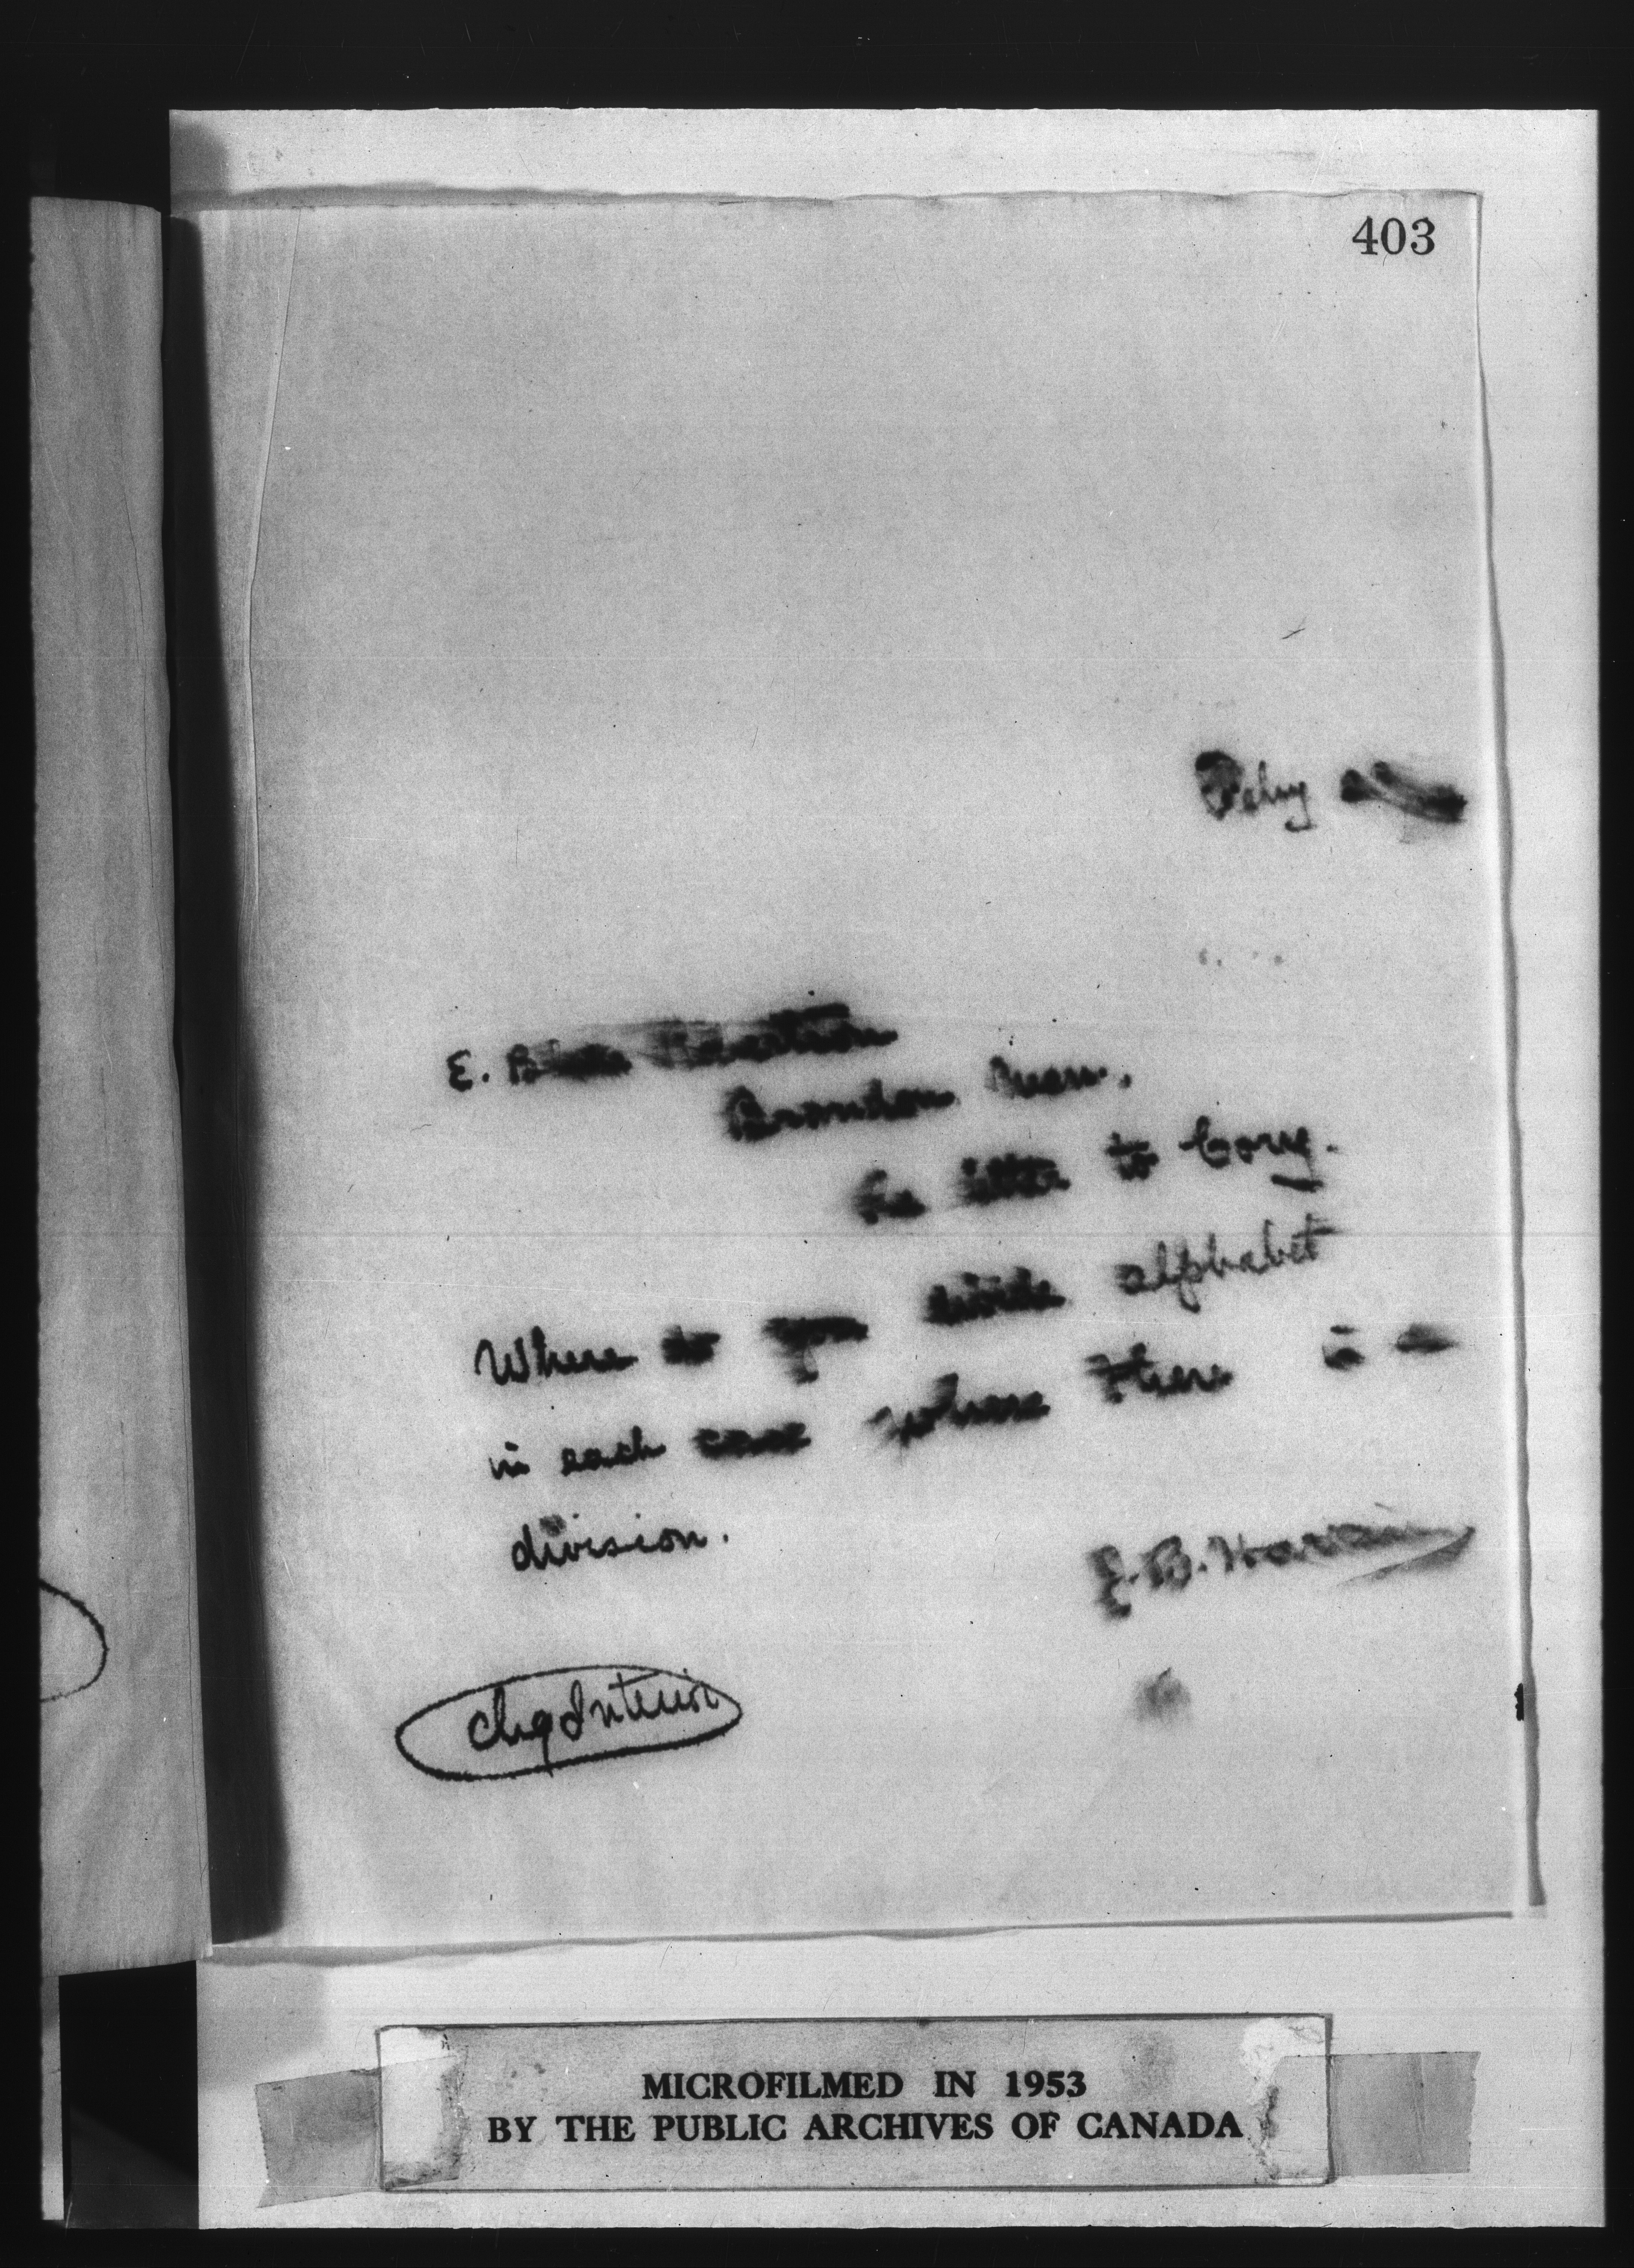 403
E.
Brandon Man.
letter to Cory.
Where do you divide alphabet
in each case where there is a
division.
E. B.
Chg Interior
MICROFILMED IN 1953
BY THE PUBLIC ARCHIVES OF CANADA